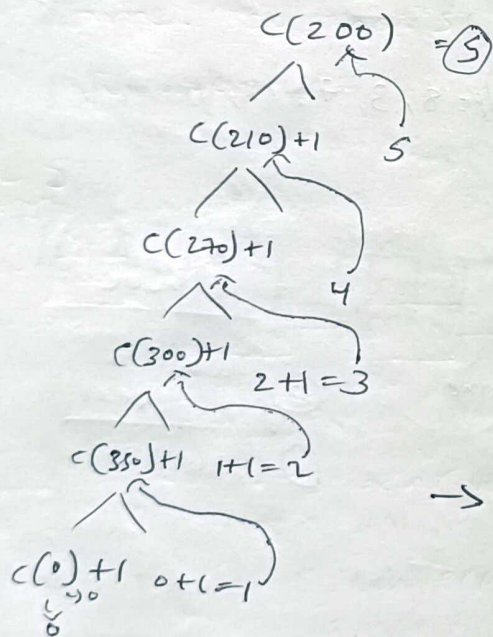 C(200) = 5
C(210)+1 5
C(270)+1 4
C(300)+1 2+1=3
C(350)+1 1+1=2
→
C(0)+1 0+1=1
↳0
0